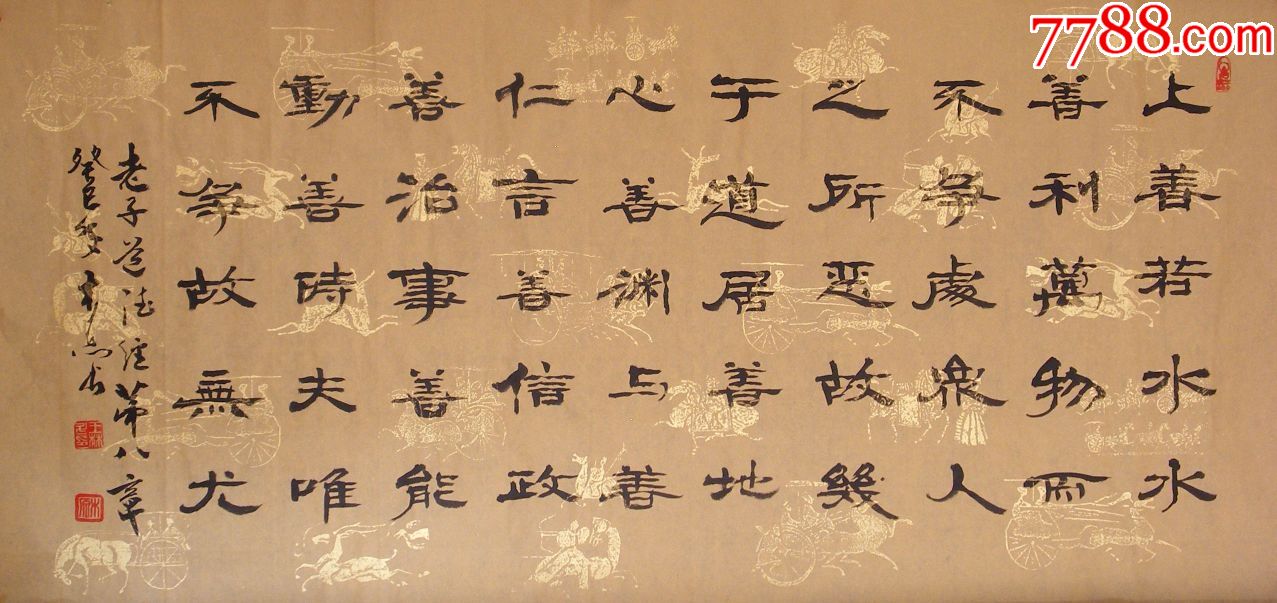 7788.com
上善若水水
善利萬物而
不爭處衆人
之所惡故幾
于道居善地
心善渊与善
仁言善信政
善治事善能
動善時夫唯
不爭故無尤
老子道德經第八章
癸巳